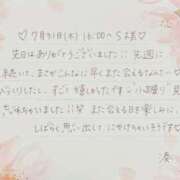 ♡7月31日(木) 16:00〜 S様♡
先日はありがとうございました!!先週に
続いて、まさかこんなに早くまた会えるなんて…♡
とても嬉しかったです
ちゃいました!!また会える日を楽しみに、
しばらく思い出してにやけちゃいそうです♡
湊